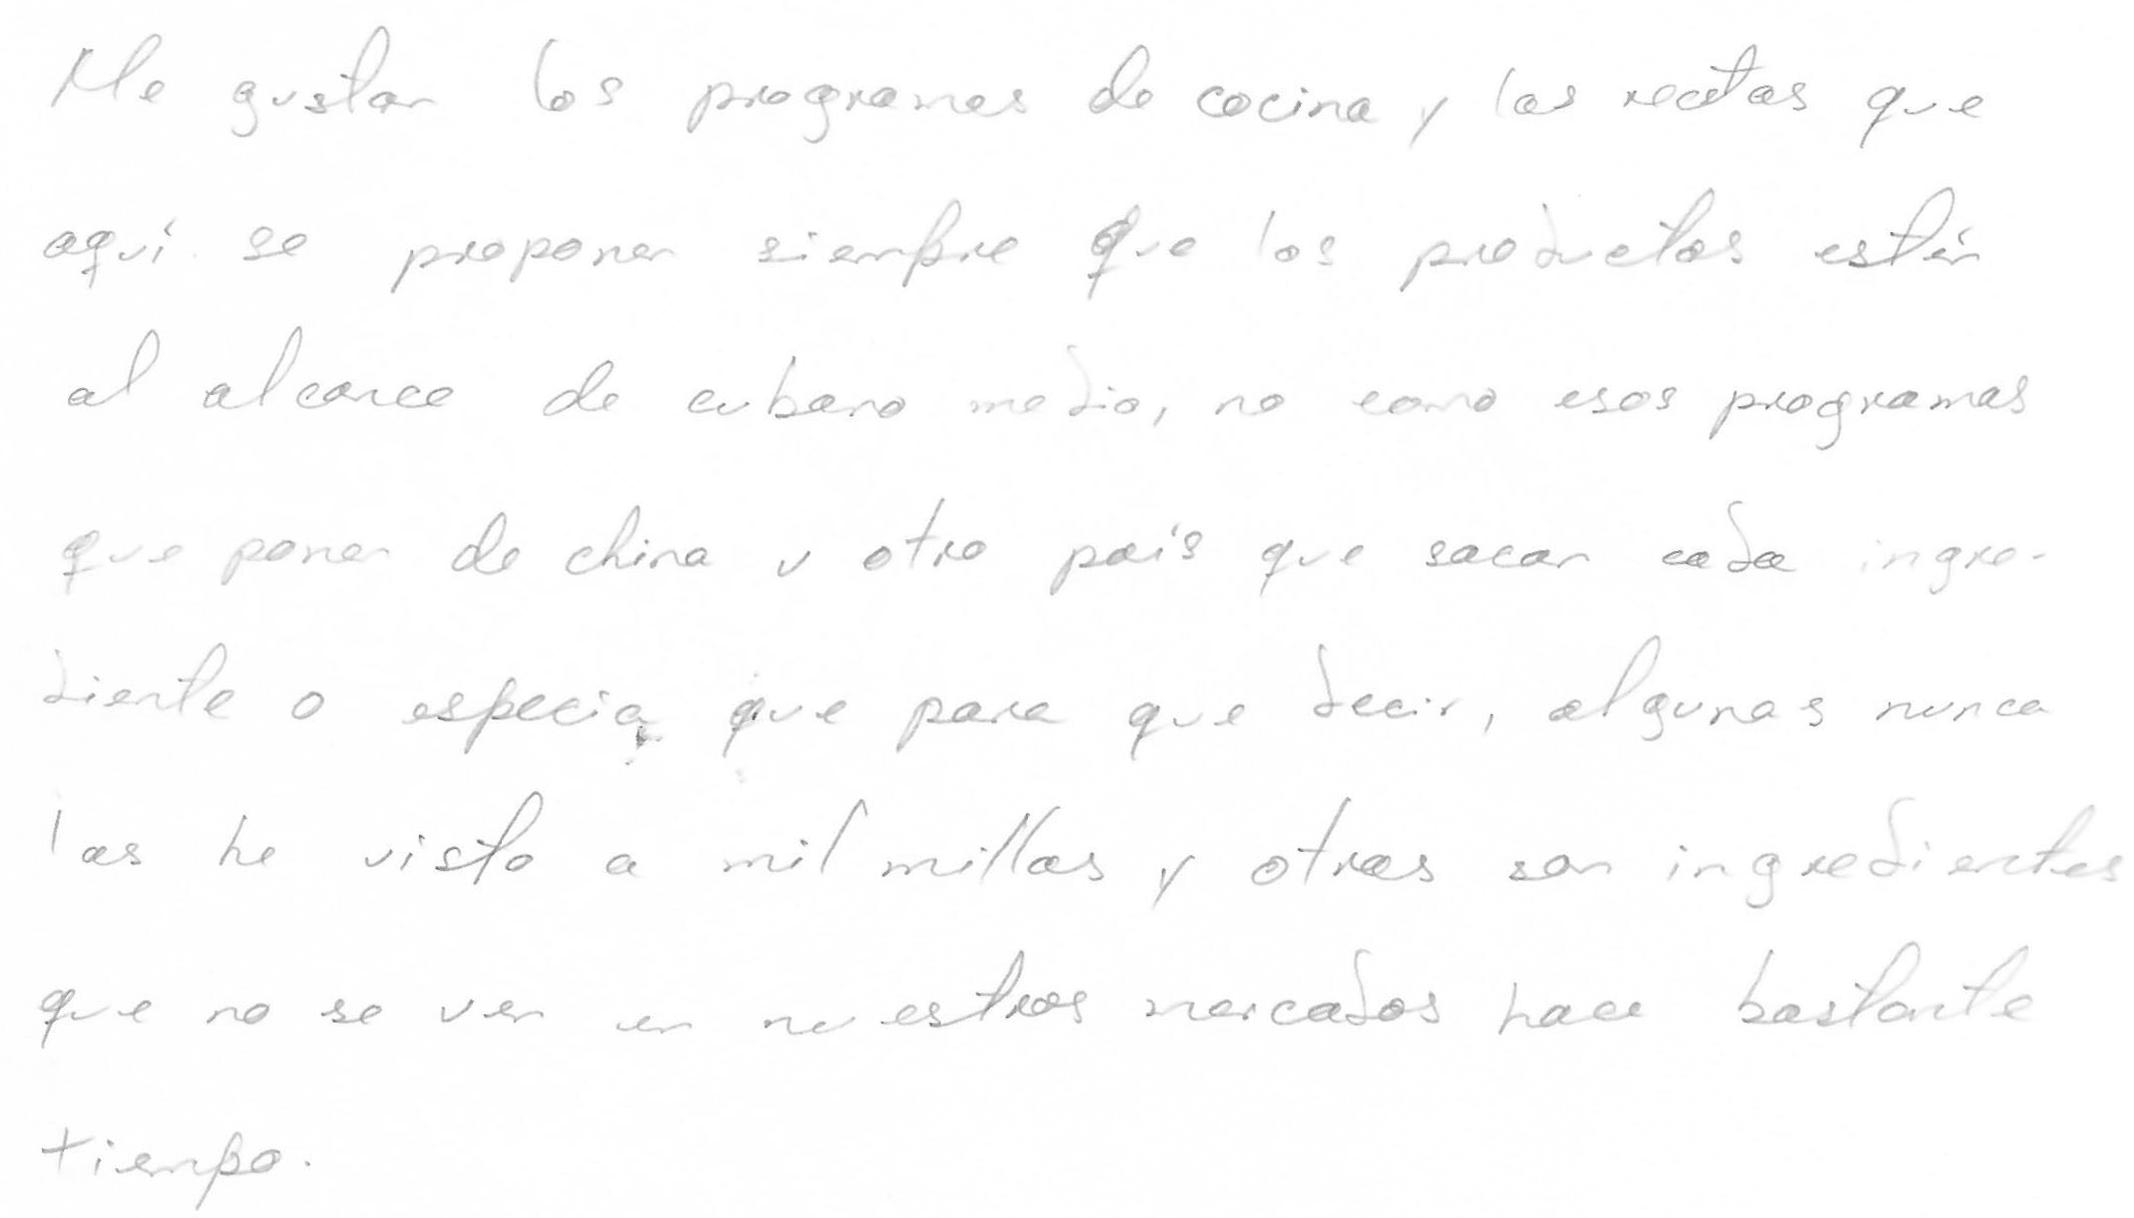 Me gustan los programas de cocina y las recetas que
aquí se proponen siempre que los productos estén
al alcance de cubano medio, no como esos programas
que ponen de china u otro país que sacan cada ingre-
diente o especia que para que decir, algunas nunca
las he visto a mil millas y otras son ingredientes
que no se ven en nuestros mercados hace bastante
tiempo.